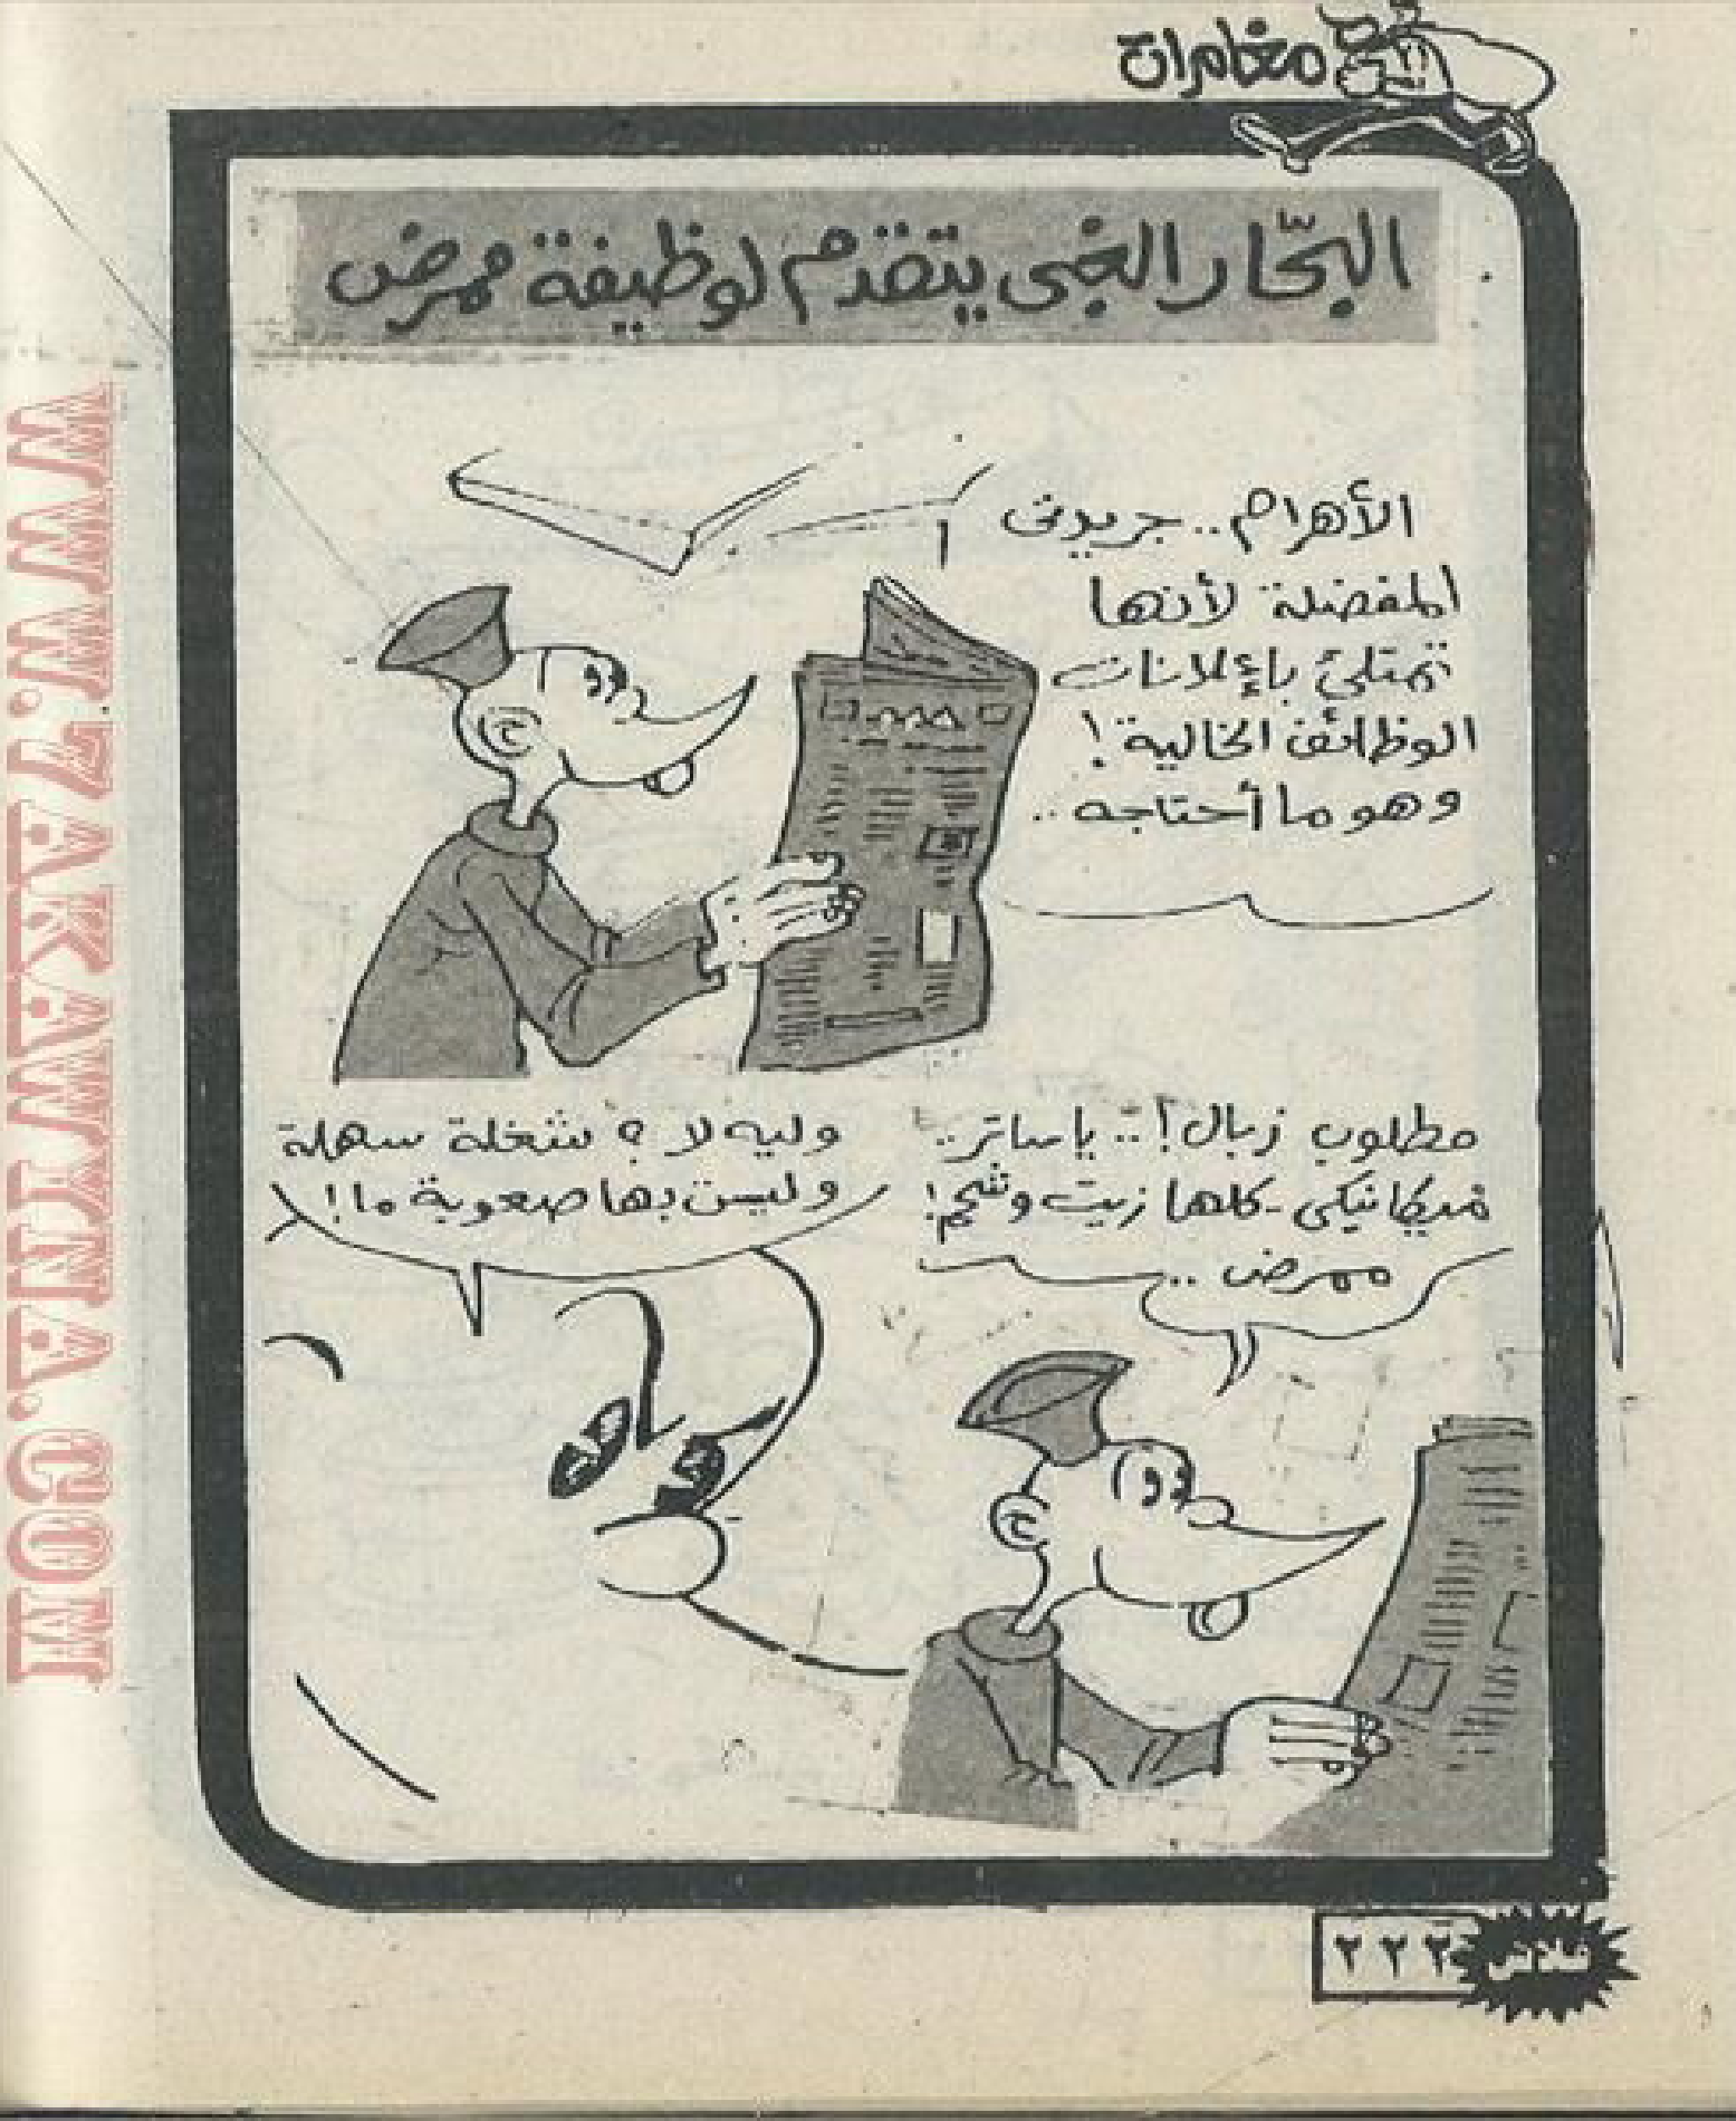 مغامرات
البحّار الغبى يتقدم لوظيفة ممرض
الأهرام.. جريدتى
المفضلة لأنها
تمتلئ بإعلانات
الوظائف الخالية!
وهو ما أحتاجه..
مطلوب زبال!.. ياساتر..
ميكانيكى.. كلها زيت وشحم!
ممرض..
وليه لا؟ شغلة سهلة
وليس بها صعوبة ما!
فلاش
٢٢٢
WWW.7AKAWINA.COM